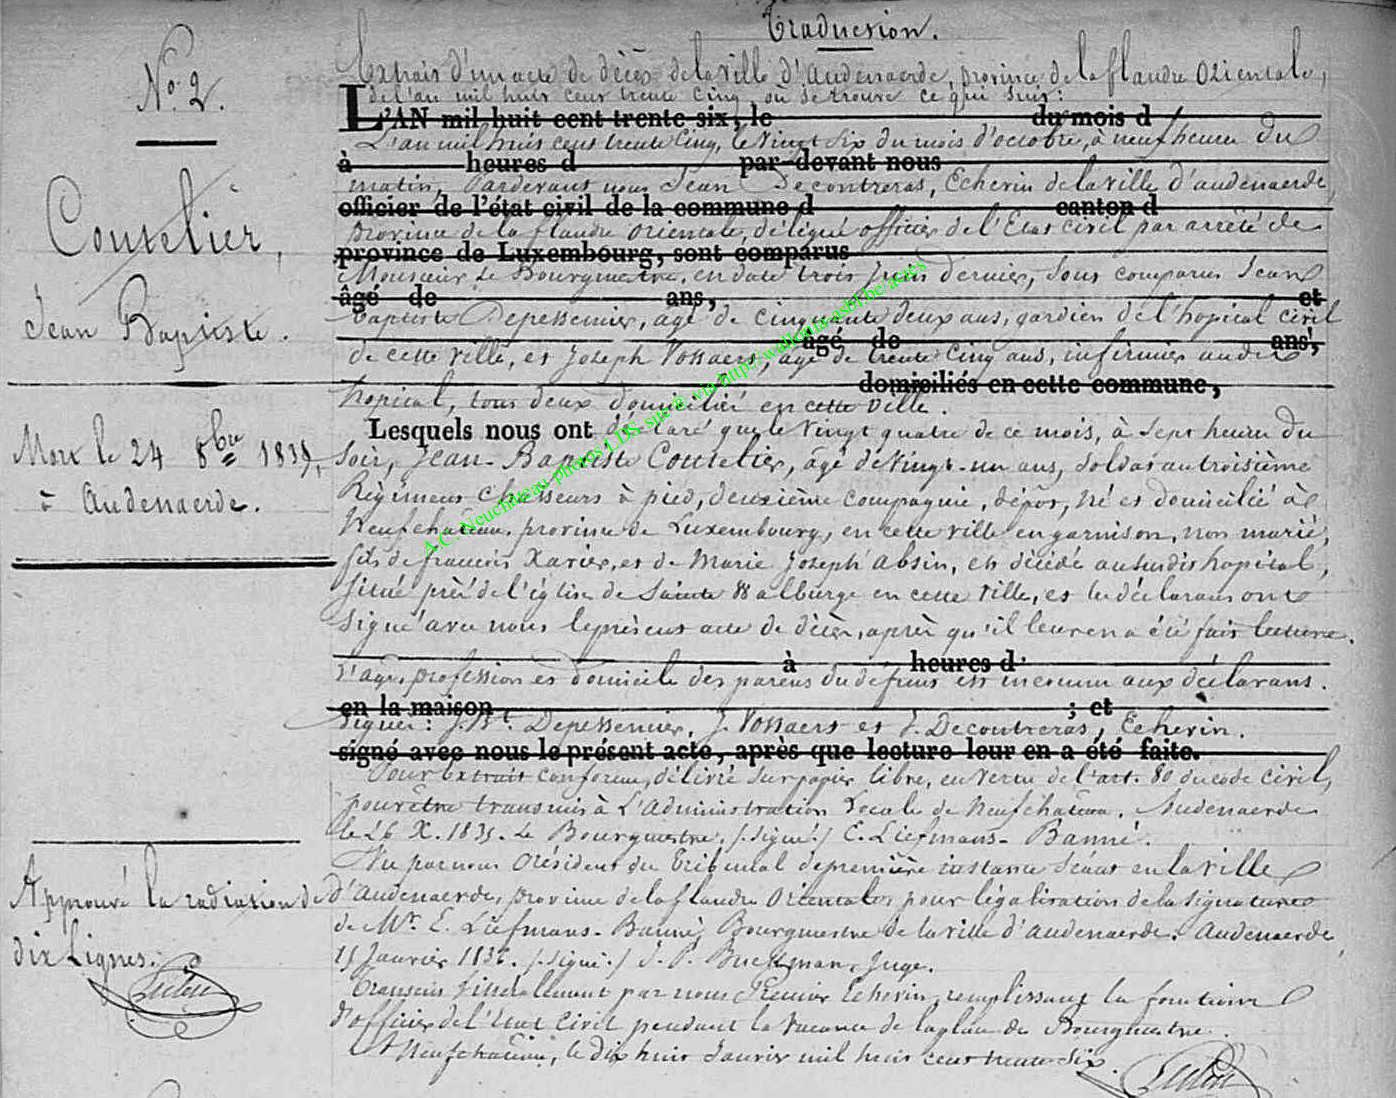 Traduction.
No. 2.
Coutelier,
Jean Baptiste.
Mort le 24 8bre 1835,
à Audenaerde.
Approuvé la radiation de
dix lignes.
Extrait d'un acte de décès de la ville d'Audenaerde, province de la flandre Orientale,
de l'an mil huit cent trente cinq où se trouve ce qui suit:
L'AN mil huit cent trente six, le du mois d
L'an mil huit cent trente cinq, le vingt six du mois d'octobre, à neuf heures du
à heures d par-devant nous
matin, Pardevant nous Jean Decontreras, Echevin de la ville d'audenaerde,
officier de l'état civil de la commune d canton d
province de la flandre orientale, délégué officier de l'Etat civil par arrêté de
province de Luxembourg, sont comparus
Monsieur le Bourgmestre, en date trois Juin dernier, sont comparus Jean
âgé de ans, et
Baptiste Depessemier, agé de cinquante deux ans, gardien de l'hopital civil
âgé de ans,
de cette ville, et Joseph Vossaers, agé de trente cinq ans, infirmier audit
domiciliés en cette commune,
hopital, tous deux domicilié en cette ville.
Lesquels nous ont déclaré que le vingt quatre de ce mois, à sept heures du
soir, Jean-Baptiste Coutelier, âgé de vingt-un ans, soldat au troisième
Régiment Chasseurs à pied, deuxième compagnie, dépôt, né et domicilié à
Neufchateau, province de Luxembourg, en cette ville en garnison, non marié,
fils de francois Xavier, et de Marie Joseph Absin, est décédé au susdit hopital,
situé près de l'église de Sainte Walburge en cette ville, et les déclarans ont
signé avec nous le présent acte de décès, après qu'il leur en a été fait lecture.
à heures d
L'age, profession et domicile des parens du défunt est inconnu aux déclarans.
en la maison ; et
Signé: J. Bt. Depessemier, J. Vossaers et J. Decontreras, Echevin.
signé avec nous le présent acte, après que lecture leur en a été faite.
Pour Extrait conforme, délivré sur papier libre, en vertu de l'art. 80 du code civil,
pour être transmis à L'Administration Locale de Neufchateau. Audenaerde
le 26 X. 1835. Le Bourgmestre, /signé./ E. Liefmans-Banné.
Vu par nous Président du Tribunal de première instance séant en la ville
d'Audenaerde, province de la flandre Orientale, pour légalisation de la signature
de Mr. E. Liefmans-Banné, Bourgmestre de la ville d'audenaerde. Audenaerde,
Janvier /signé./ Juge.
Transcrit littérallement par nous Premier Echevin, remplissant la fonction
d'officier de l'Etat Civil pendant la vacance de la place de Bourgmestre.
A Neufchateau, le dix huit Janvier mil huit cent trente six.
A.C. Neufchateau photos LDS, sur @ via http://wallonia-asbl.be/actes